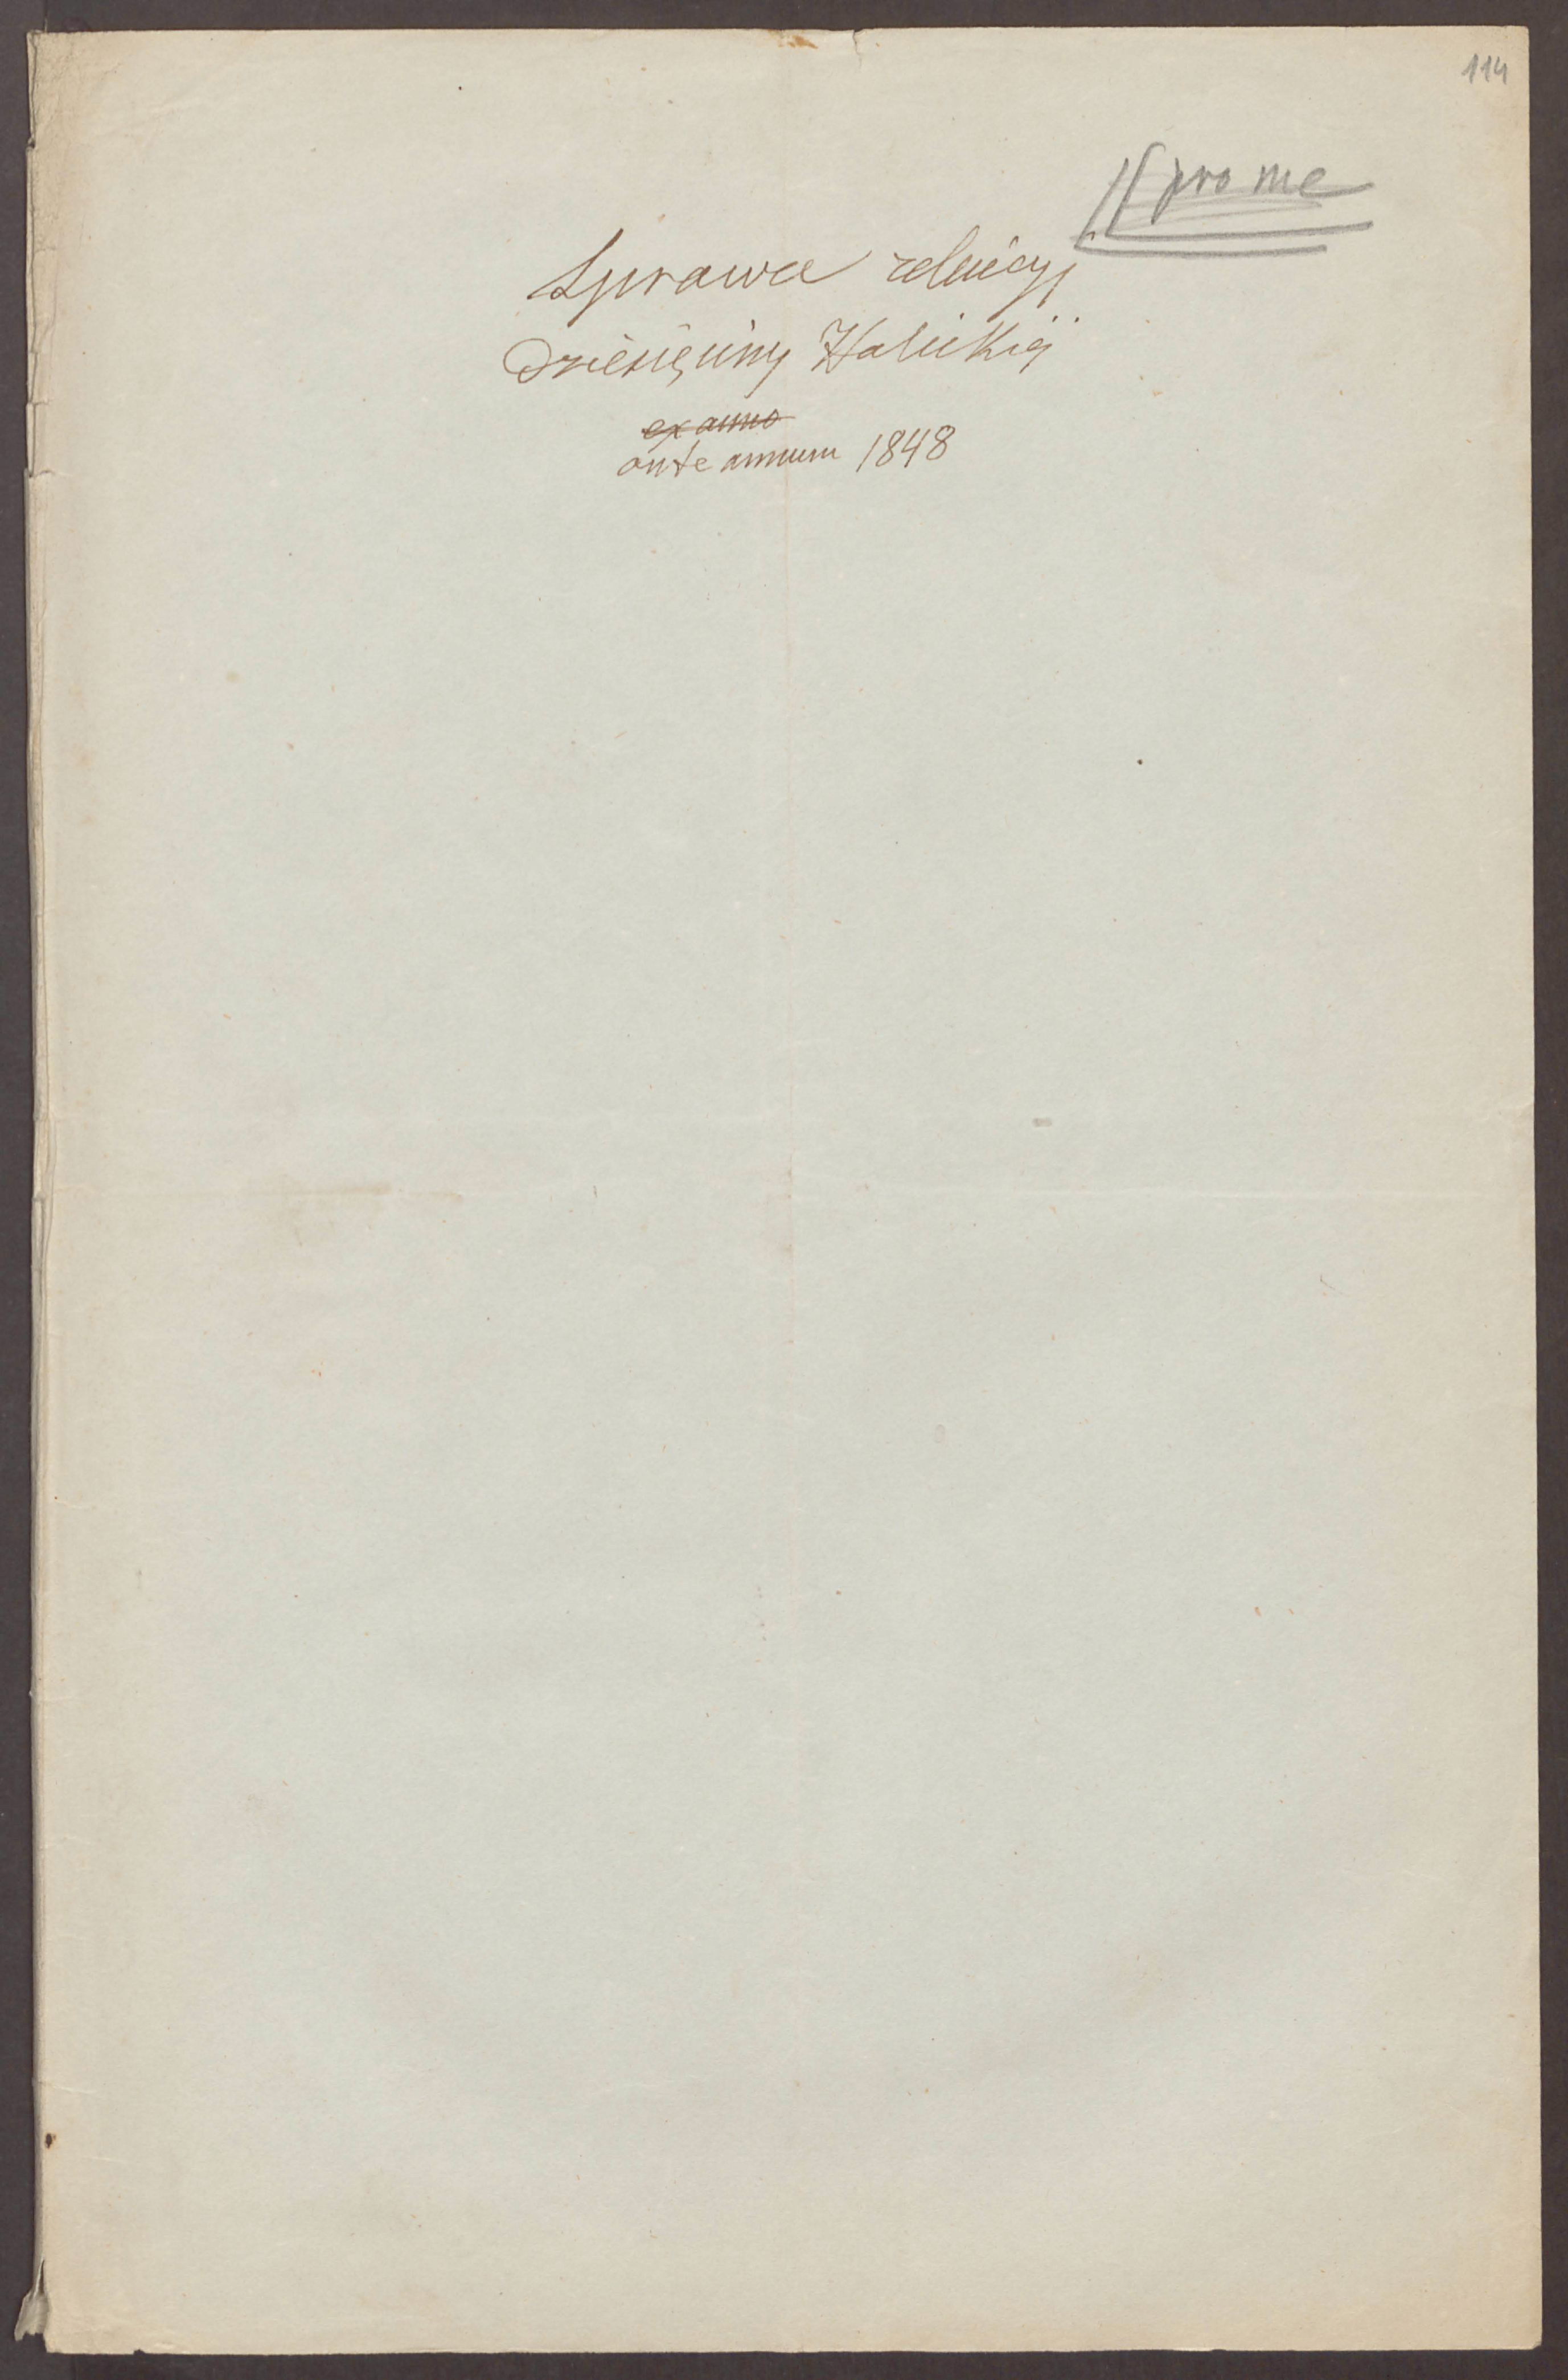 114
pro me
Sprawa relucyj
Dziesięciny Halickiéj
ex anno
ante annum 1848